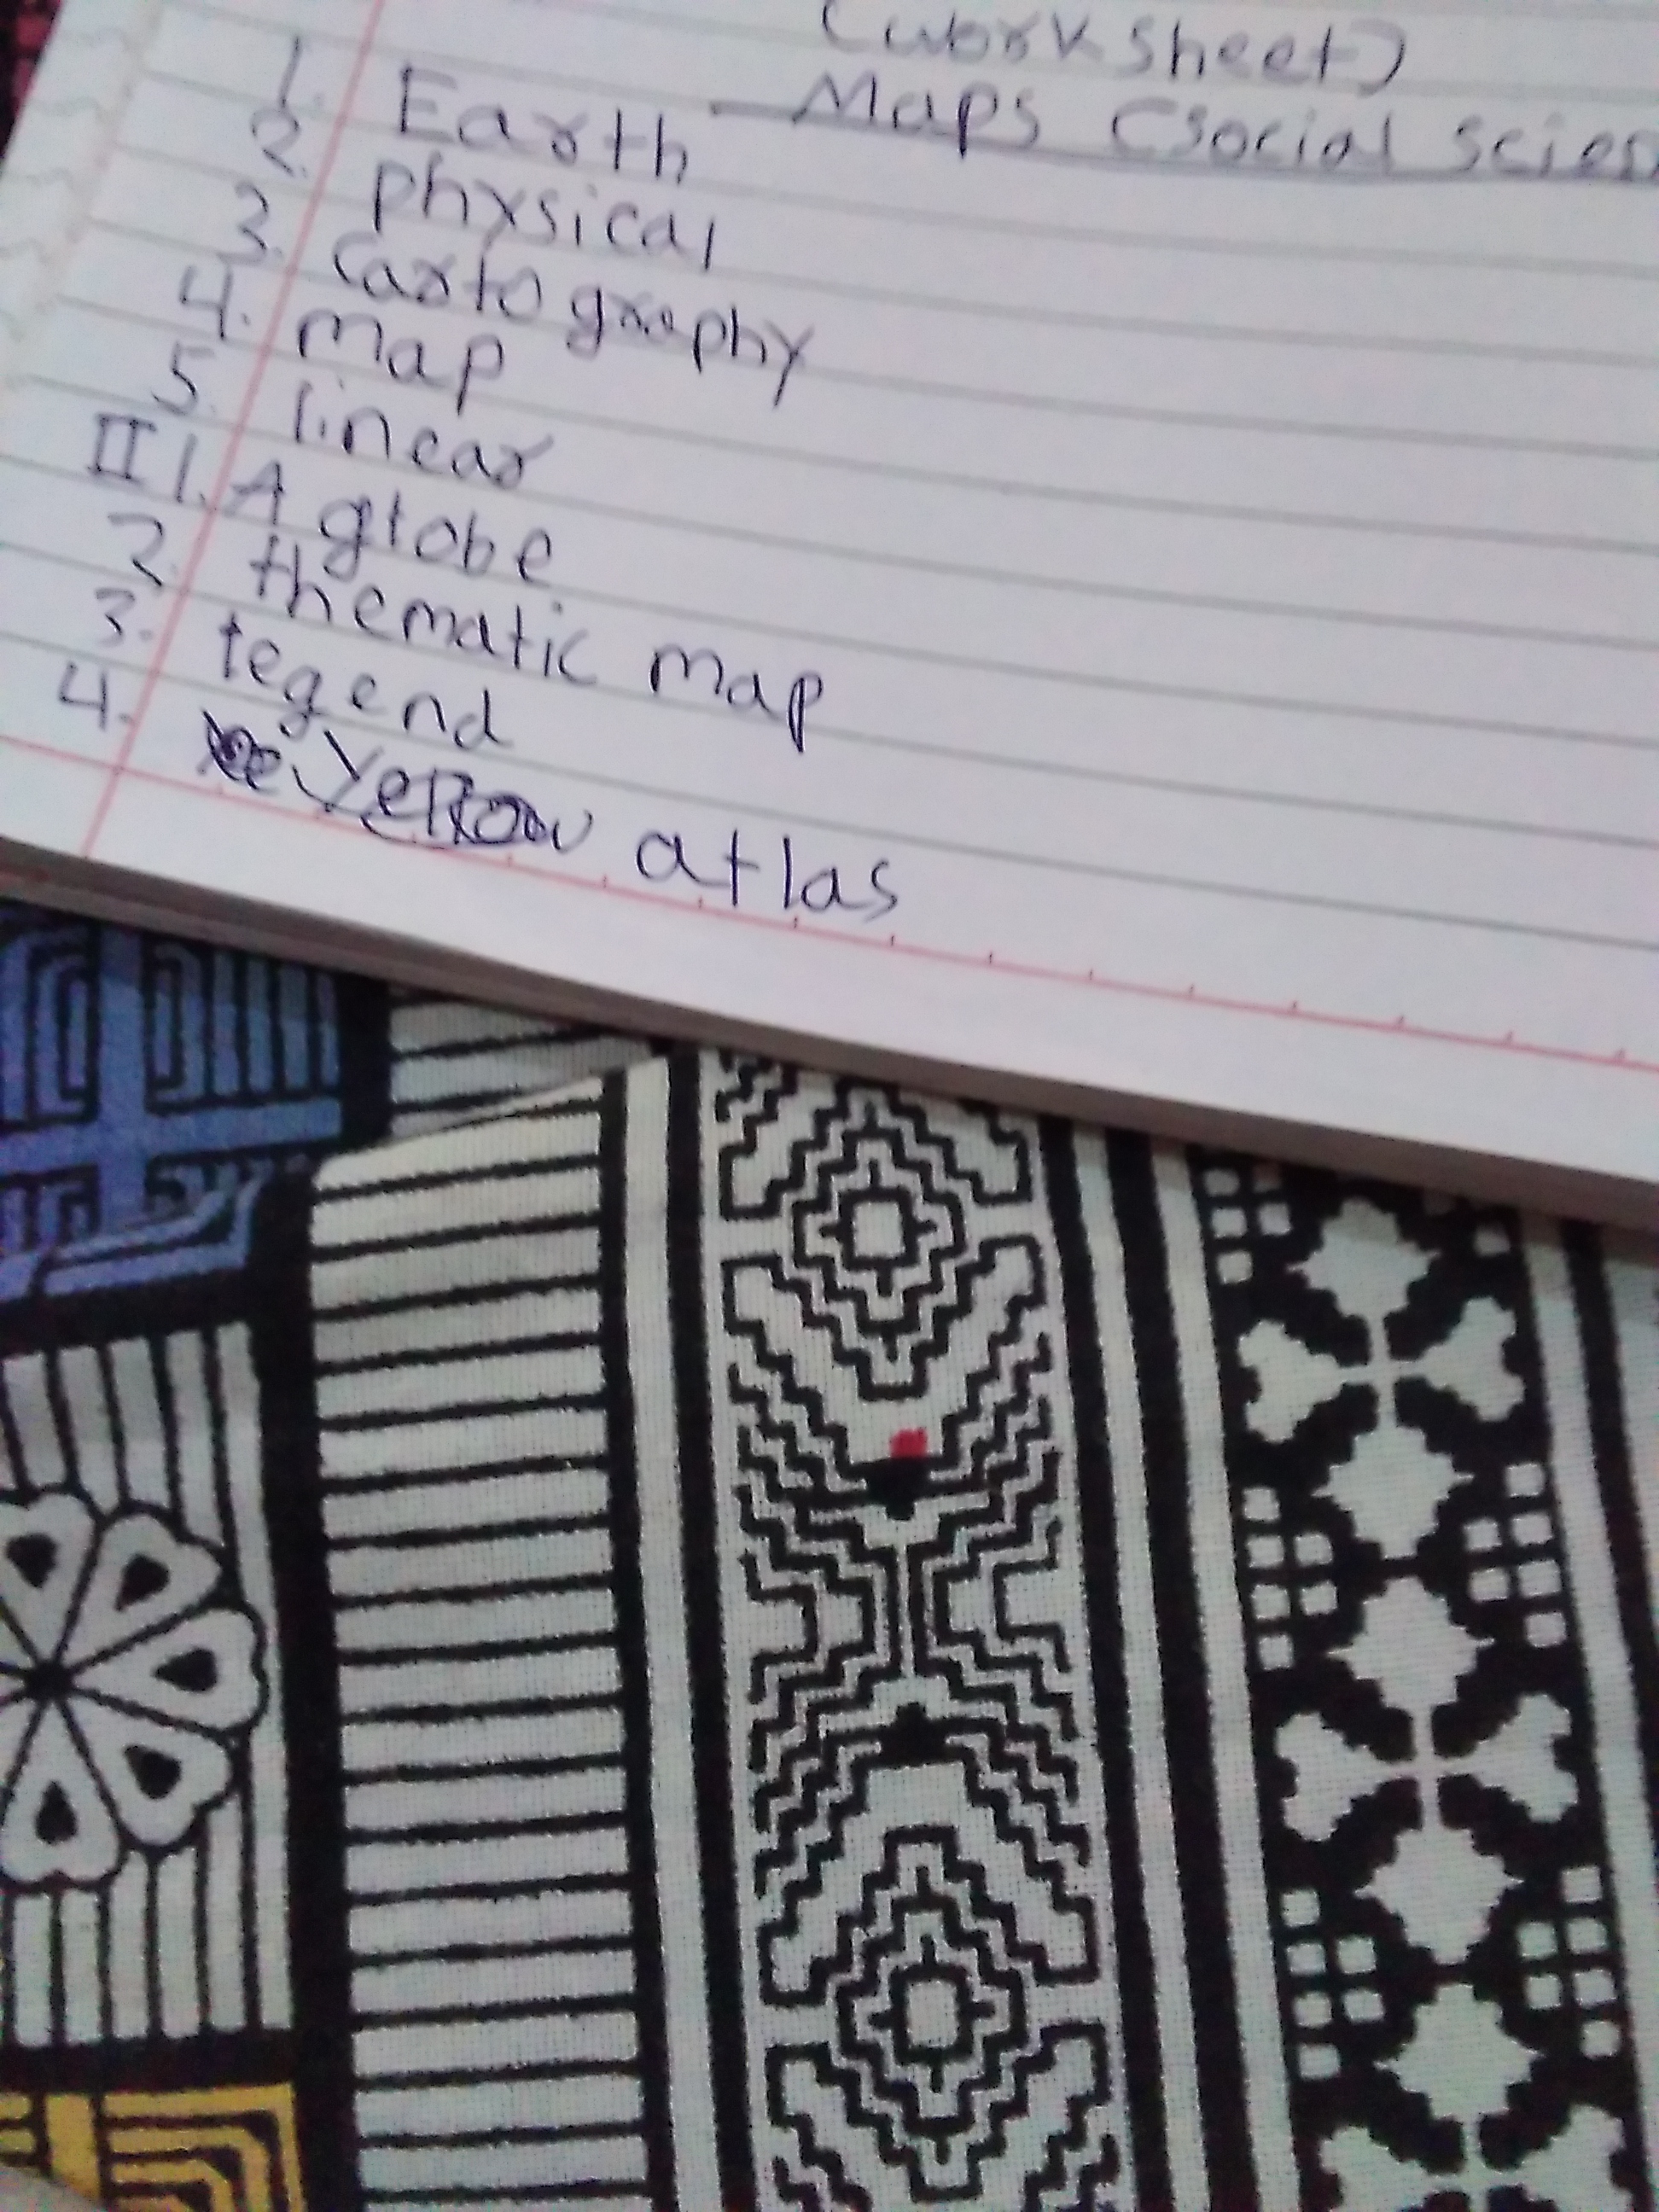 (worksheet)
Maps (social scien
1. Earth
2. physical
3. Cartography
4. map
5. linear
II 1. A globe
2. thematic map
3. legend
4. yellow atlas